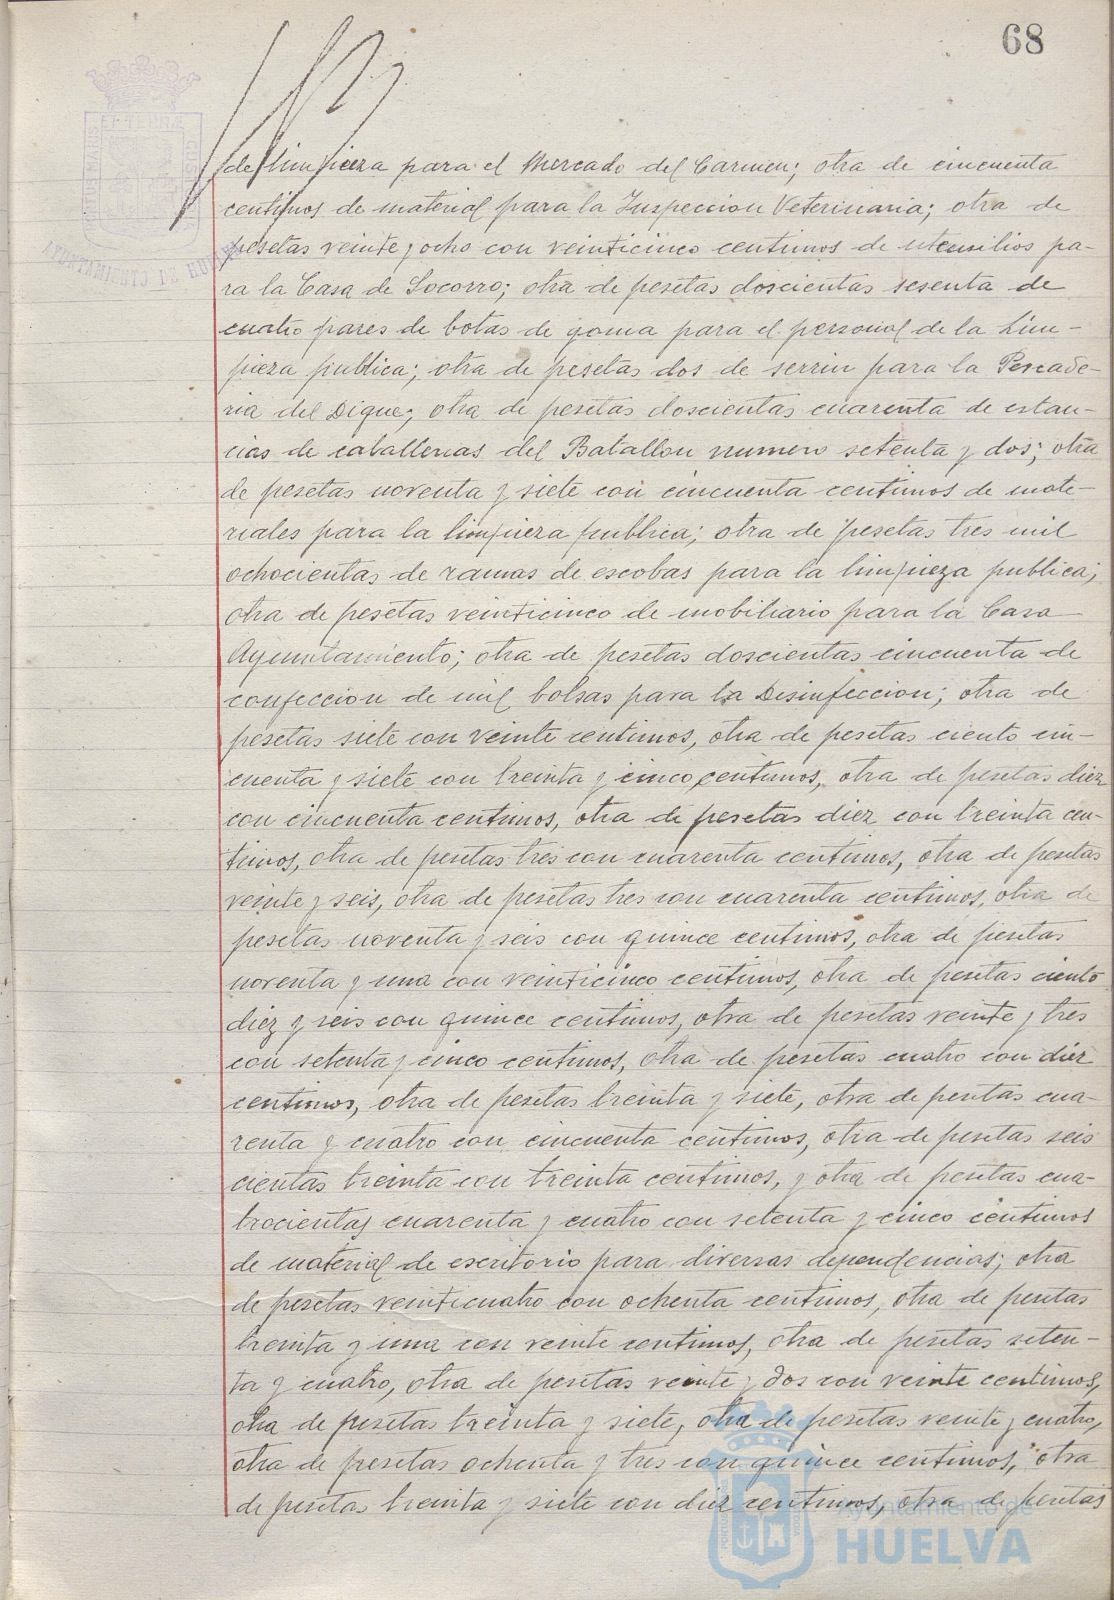 68
de limpieza para el Mercado del Carmen; otra de cincuenta
centimos de material para la Inspeccion Veterinaria; otra de
pesetas veinte y ocho con veinticinco centimos de utensilios pa-
ra la Casa de Socorro; otra de pesetas doscientas sesenta de
cuatro pares de botas de goma para el personal de la Lim-
pieza publica; otra de pesetas dos de serrin para la Pescade-
ria del Dique; otra de pesetas doscientas cuarenta de estan-
cias de caballerias del Batallon numero setenta y dos; otra
de pesetas noventa y siete con cincuenta centimos de mate-
riales para la limpieza publica; otra de pesetas tres mil
ochocientas de ramas de escobas para la limpieza publica;
otra de pesetas veinticinco de mobiliario para la Casa
Ayuntamiento; otra de pesetas doscientas cincuenta de
confeccion de mil bolsas para la Desinfeccion; otra de
pesetas siete con veinte centimos, otra de pesetas ciento cin-
cuenta y siete con treinta y cinco centimos, otra de pesetas diez
con cincuenta centimos, otra de pesetas diez con treinta cen-
timos, otra de pesetas tres con cuarenta centimos, otra de pesetas
veinte y seis, otra de pesetas tres con cuarenta centimos, otra de
pesetas noventa y seis con quince centimos, otra de pesetas
noventa y una con veinticinco centimos, otra de pesetas ciento
diez y seis con quince centimos, otra de pesetas veinte y tres
con setenta y cinco centimos, otra de pesetas cuatro con diez
centimos, otra de pesetas treinta y siete, otra de pesetas cua-
renta y cuatro con cincuenta centimos, otra de pesetas seis
cientas treinta con treinta centimos, y otra de pesetas cua-
trocientas cuarenta y cuatro con setenta y cinco centimos
de material de escritorio para diversas dependencias; otra
de pesetas veinticuatro con ochenta centimos, otra de pesetas
treinta y una con veinte centimos, otra de pesetas seten-
ta y cuatro, otra de pesetas veinte y dos con veinte centimos,
otra de pesetas treinta y siete, otra de pesetas veinte y cuatro,
otra de pesetas ochenta y tres con quince centimos, otra
de pesetas treinta y siete con diez centimos, otra de pesetas
AYUNTAMIENTO DE HUELVA
Ayuntamiento de
HUELVA